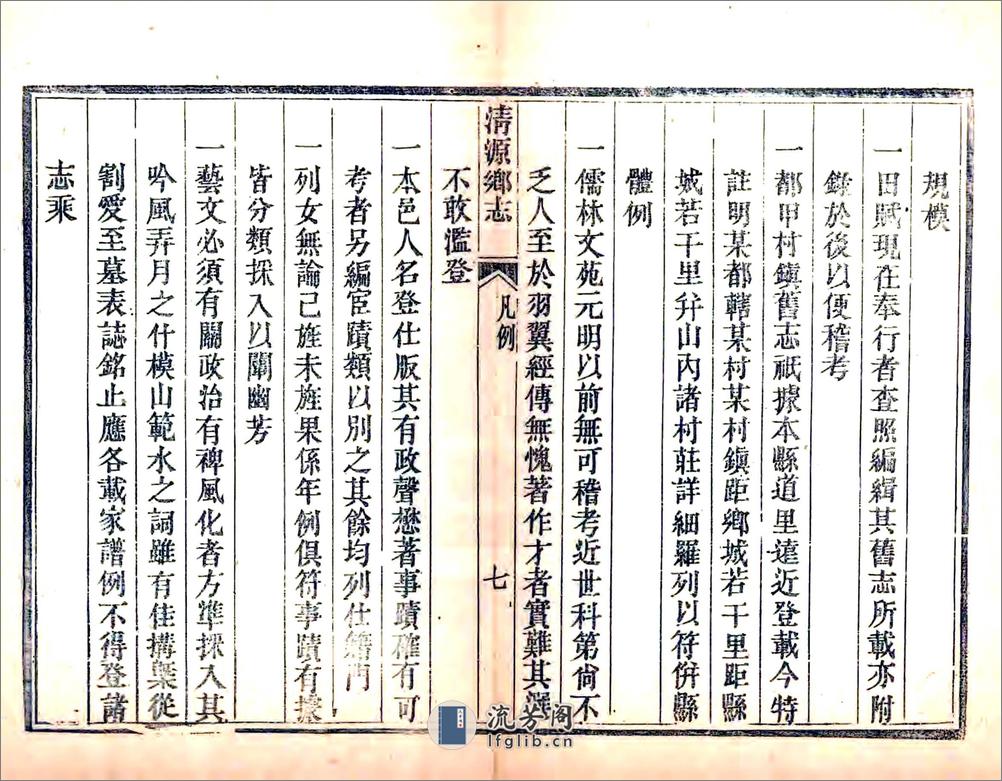 規模
一田賦現在奉行者查照編緝其舊志所載亦附
錄於後以便稽考
一都甲村鎮舊志祇據本縣道里遠近登載今特
註明某都轄某村某村鎮距鄉城若干里距縣
城若干里幷山內諸村莊詳細羅列以符併縣
體例
一儒林文苑元明以前無可稽考近世科第尙不
乏人至於羽翼經傳無愧著作才者實難其選
不敢濫登
清源鄉志
凡例
七
一本邑人名登仕版其有政聲懋著事蹟確有可
考者另編宦蹟類以別之其餘均列仕籍門
一列女無論已旌未旌果係年例俱符事蹟有據
皆分類採入以闡幽芳
一藝文必須有關政治有裨風化者方準採入其
吟風弄月之什模山範水之詞雖有佳搆槩從
割愛至墓表誌銘止應各載家譜例不得登諸
志乘
流芳閣
lfglib.cn